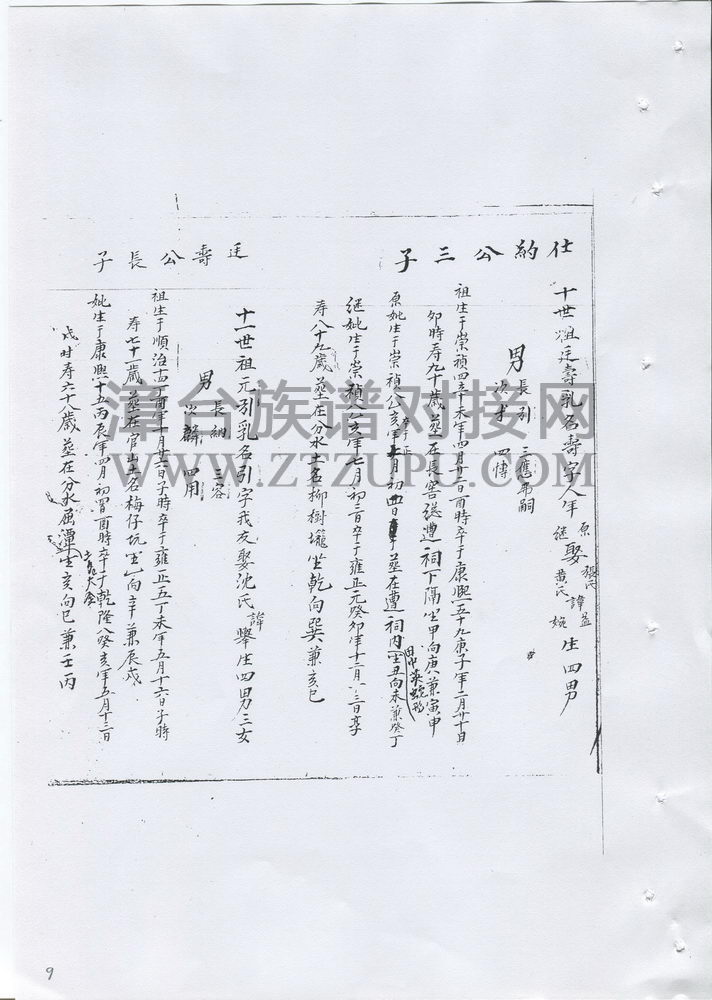 仕納公三子
十世祖廷壽乳名壽字人年 原 張氏 諱益
娶
继 黄氏 婉 生四男
男 長引 三應弗嗣
次 四愽
祖生于崇禎四辛未年四月廿日酉時卒于康熙五十九庚子年二月廿十日
卯時寿九十歳葬在長窖 祠下隔坐甲向庚兼寅申
原妣生于崇禎 癸亥年 月初四日 葬在遭祠内坐丑向未兼癸丁
継妣生于崇禎八乙亥年七月初三日卒于雍正元癸卯年十二月 三日享
寿八十九歳葬在分水土名柳樹壠坐乾向巽兼亥巳
廷壽公長子
十一世祖元引乳名引字我友娶沈氏諱 生四男三女
男 長納 三容
次麟 四用
祖生于順治十四丁酉年十月廿六日子時卒于雍正五丁未年五月十六日子時
寿七十一歳葬在官山土名梅仔坑坐乙向辛兼辰戌
妣生于康熙十五丙辰年四月初 酉時卒于乾隆八癸亥年五月十三日
戌时寿六十 歳葬在分水 潭坐亥向巳兼壬丙
漳台族谱对接网
WWW.ZTZUPU.COM
9